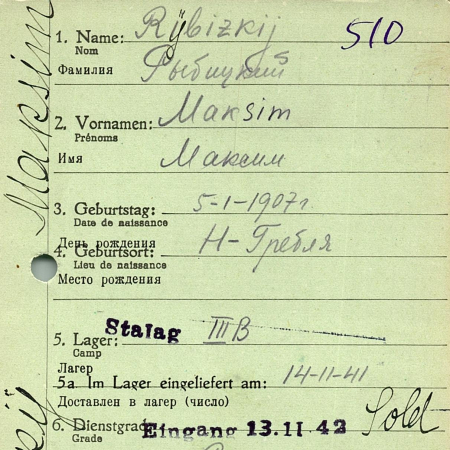 Maksim
1. Name: Rÿbizkij 510
Nom
Фамилия Рыбицкий
2. Vornamen: Maksim
Prénoms
Имя Максим
3. Geburtstag: 5-1-1907г.
Date de naissance
День рождения Н-Гребля
4. Geburtsort:
Lieu de naissance
Место рождения
5. Lager: Stalag III B
Camp
Лагер
5a. Im Lager eingeliefert am: 14-11-41
Доставлен в лагер (число)
6. Dienstgrad Eingang 13.II 42 Sold
Grade